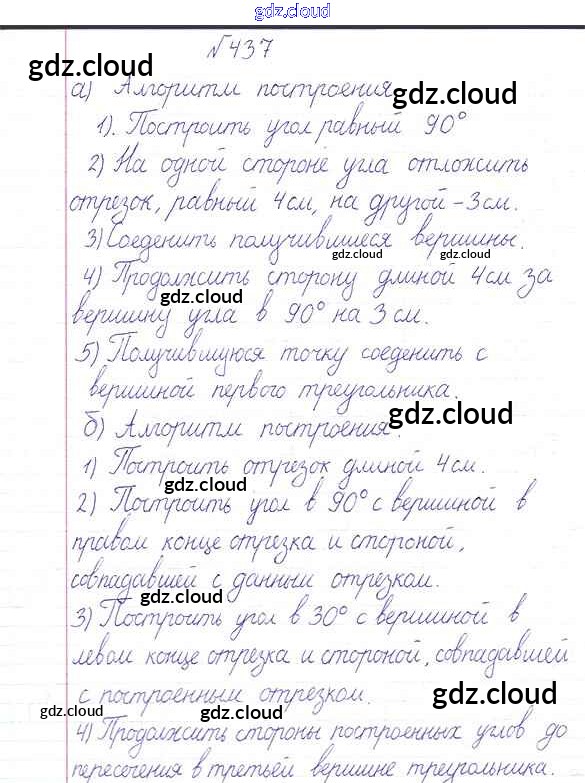 gdz.cloud
№437
gdz.cloud
а) Алгоритм построения
gdz.cloud
1). Построить угол равный 90°
2) На одной стороне угла отложить
отрезок, равный 4 см, на другой - 3 см.
3) Соеденить получившиеся вершины.
gdz.cloud gdz.cloud
4) Продолжить сторону длиной 4 см за
gdz.cloud
вершину угла в 90° на 3 см.
5) Получившуюся точку соеденить с
вершиной первого треугольника.
gdz.cloud
б) Алгоритм построения:
1) Построить отрезок длиной 4 см.
gdz.cloud
2) Построить угол в 90° с вершиной в
правом конце отрезка и стороной,
совпадавшей с данным отрезком.
gdz.cloud
3) Построить угол в 30° с вершиной в
левом конце отрезка и стороной, совпадавшей
с построенным отрезком.
gdz.cloud
gdz.cloud gdz.cloud
4) Продолжить стороны построенных углов до
пересечения в третьей вершине треугольника.